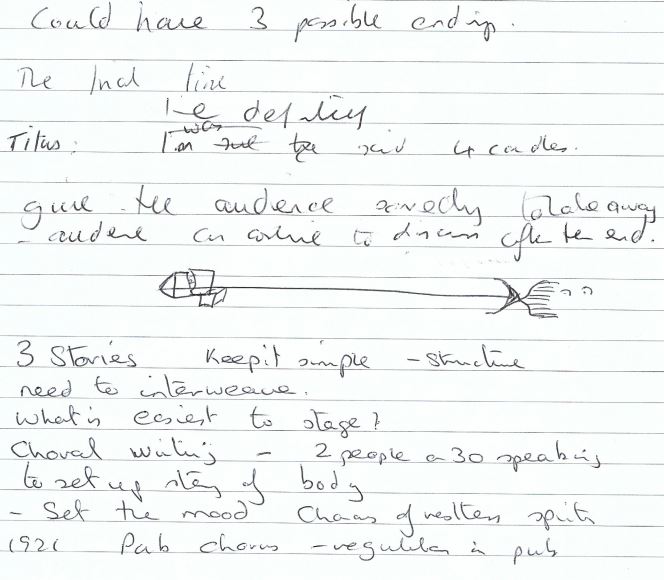 Could have 3 possible endings.
The final line
i.e.
was
Titus: I'm said 4 candles.
give the audience something to take away
- audience can continue to discuss after the end.
3 Stories Keep it simple - structure
need to interweave.
What is easiest to stage?
Choral writing - 2 people or 30 speaking
to set up story of body
- Set the mood Chorus of restless spirits
1921 Pub chorus - regulars in pub